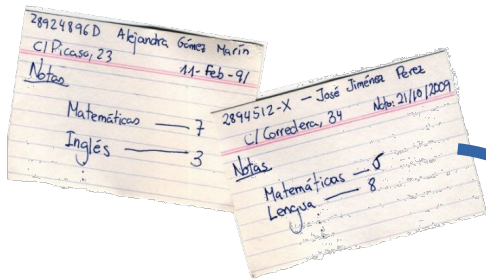 28924896D Alejandra Gómez Marín
C/Picaso, 23
11-Feb-91
Notas
Matemáticas — 7
Inglés — 3
2894512-X — José Jiménez Perez
C/Corredera, 34
Ndto: 21/10/2009
Notas
Matemáticas — 5
Lengua — 8